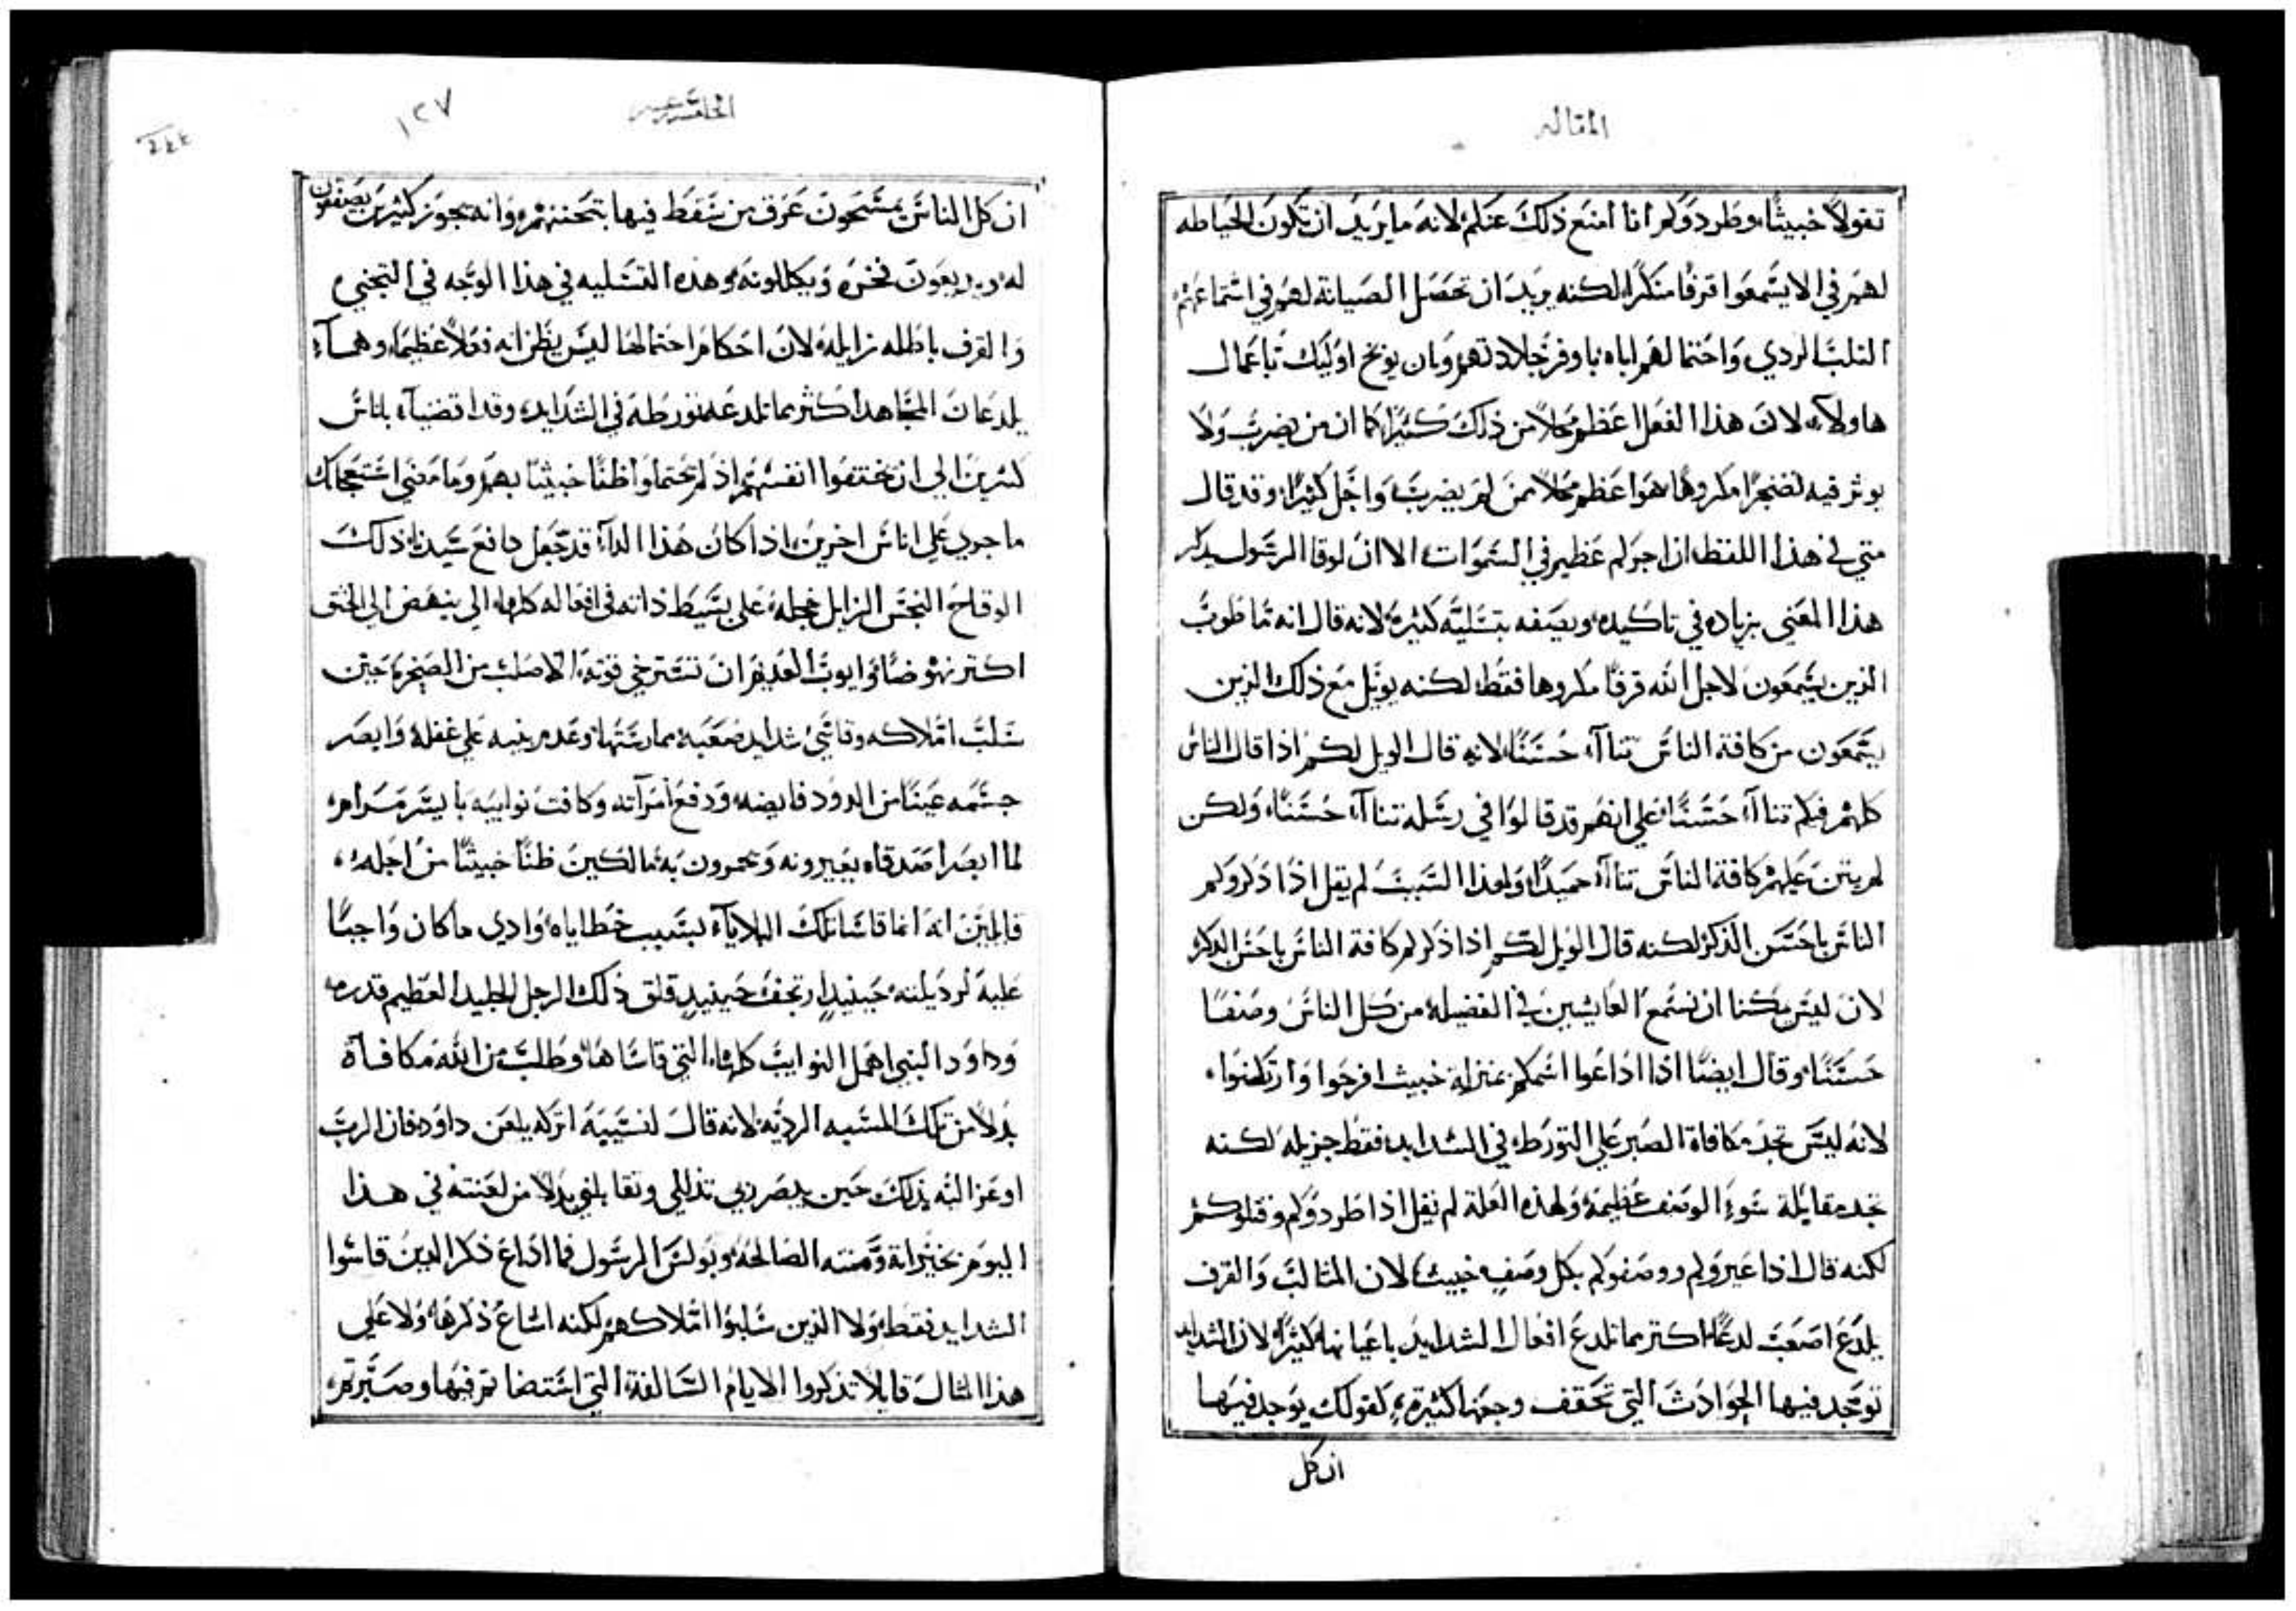 المقاله
تقولاً خبيثًا، وطردوكم أنا أمنع ذلك عنكم لانه ما يريد ان تكون الحياطه
لهم في الا يسمعوا قرفًا منكرًا، لكنه يريد ان تحصل الصيانة لهم في استماعهم
الثلب الردي واحتمالهم اياه باوفر جلادتهم وبان يوبخ اوليك باعمال
هاولاء، لان هذا الفعل اعظم محلاً من ذلك كثيرًا كما ان من يضرب ولا
يوثر فيه تضجرًا مكروهًا هوا عظم محلاً ممن لم يضرب، واجل كثيرًا، وقد قال
متي في هذا اللفظ ان اجركم عظيم في السموات الا ان لوقا الرسول يذكر
هذا المعني بزياده في تاكيده، ويصفه بتسلية كثيرة لانه قال انه ما طوب
الذين يسمعون لاجل الله قرفًا مكروها فقط، لكنه يويل مع ذلك الذين
يسمعون من كافة الناس تناآء حسنًا، لانه قال الويل لكم اذا قال الناس
كلهم فيكم تناآء حسنًا، علي انهم قد قالوا في رسله تناآء حسنًا، ولكن
لم يتن عليهم كافة الناس تناآء حميدًا، ولهذا السبب لم يقل اذا ذكروكم
الناس باحسن الذكر لكنه قال الويل لكم اذا ذكركم كافة الناس باحسن الذكر
لان ليس ممكنا ان نسمع العايشين في الفضيلة من كل الناس وصفًا
حسنًا، وقال ايضًا اذا اذاعوا اسمكم بمنزلة خبيث افرحوا وارتكضوا،
لانه ليس تجد مكافاة الصبر علي التورط في الشدايد فقط جزيله، لكنه
تجد مقابلة سوء الوصف عظيمة، ولهذه العلة لم يقل اذا طردوكم وقتلوكم
لكنه قال اذا عيروكم ووصفوكم بكل وصف خبيث، لان المثالب والقرف
يلدغ اصعب لدغًا، اكتر مما تلدغ افعال الشدايد باعيانها كثيرًا، لان الشدايد
توجد فيها الحوادث التي تخفف وجعها كثيرة، كقولك يوجد فيها
ان كل
الخامسة عشر
١٢٧
٢٤٤
ان كل الناس يمسحون عرق من سقط فيها بتحننهم، وانه يجوز كثيرين يصفقون
له، ويديعون فخره ويكللونه، وهذه التسليه في هذا الوجه في التجني
والقرف باطله زايله، لان احكام احتمالها ليس يظن انه فعلاً عظيمًا، وهما
يلدغان المجاهد اكثر مما تلدغه تورطه في الشدايد، وقد اقتضيآه باناس
كثيرين الي ان يختنقوا انفسهم اذ لم يحتملوا ظنًا خبيثًا بهم، وما معني استعجابك
ما جري علي اناس اخرين، اذا كان هذا الدآء قد جعل دافع سيدنا، ذلك
الوقاح النجس الزايل خجله، علي بسيط ذاته في افعاله كلها، الي ينهض الي الخنق
اكتر نهوضًا، وايوب العديم ان تسترخي قوته، الاصلب من الصخرة، حين
سلب املاكه وقاسي شدايد صعبة ممارستها، وعدم بنيه علي غفلة وابصر
جسمه عينًا من الدود فايضه، ودفع امرآته وكافت نوايبه بايسر مرام،
لما ابصر اصدقاه يعيرونه ويحمرون به مالكين ظنًا خبيثًا من اجله،
قايلين انه انما قاسا تلك البلايآه بسبب خطاياه، وادي ما كان واجبًا
عليه لرديلته، حينيدٍ ارتجف حينيدٍ قلق ذلك الرجل الجليد العظيم قدره،
وداود النبي اهمل النوايب كلها، التي قاساها، وطلب من الله مكافآة
بدلاً من تلك المسبه الرديه، لانه قال لنسيبة اتركه يلعن داود فان الرب
اوعز اليه بذلك حين يبصر ربي تذللي وتقابلني بدلاً من لعنته في هذا
اليوم بخيراته ومنته الصالحة، وبولس الرسول فما اذاع ذكر الدين قاسوا
الشدايد فقط، ولا الذين سلبوا املاكهم لكنه اشاع ذكرها، ولا علي
هذا المثال قايلاً تذكروا الايام السالفة، التي استضاتم فيها وصبرتم،